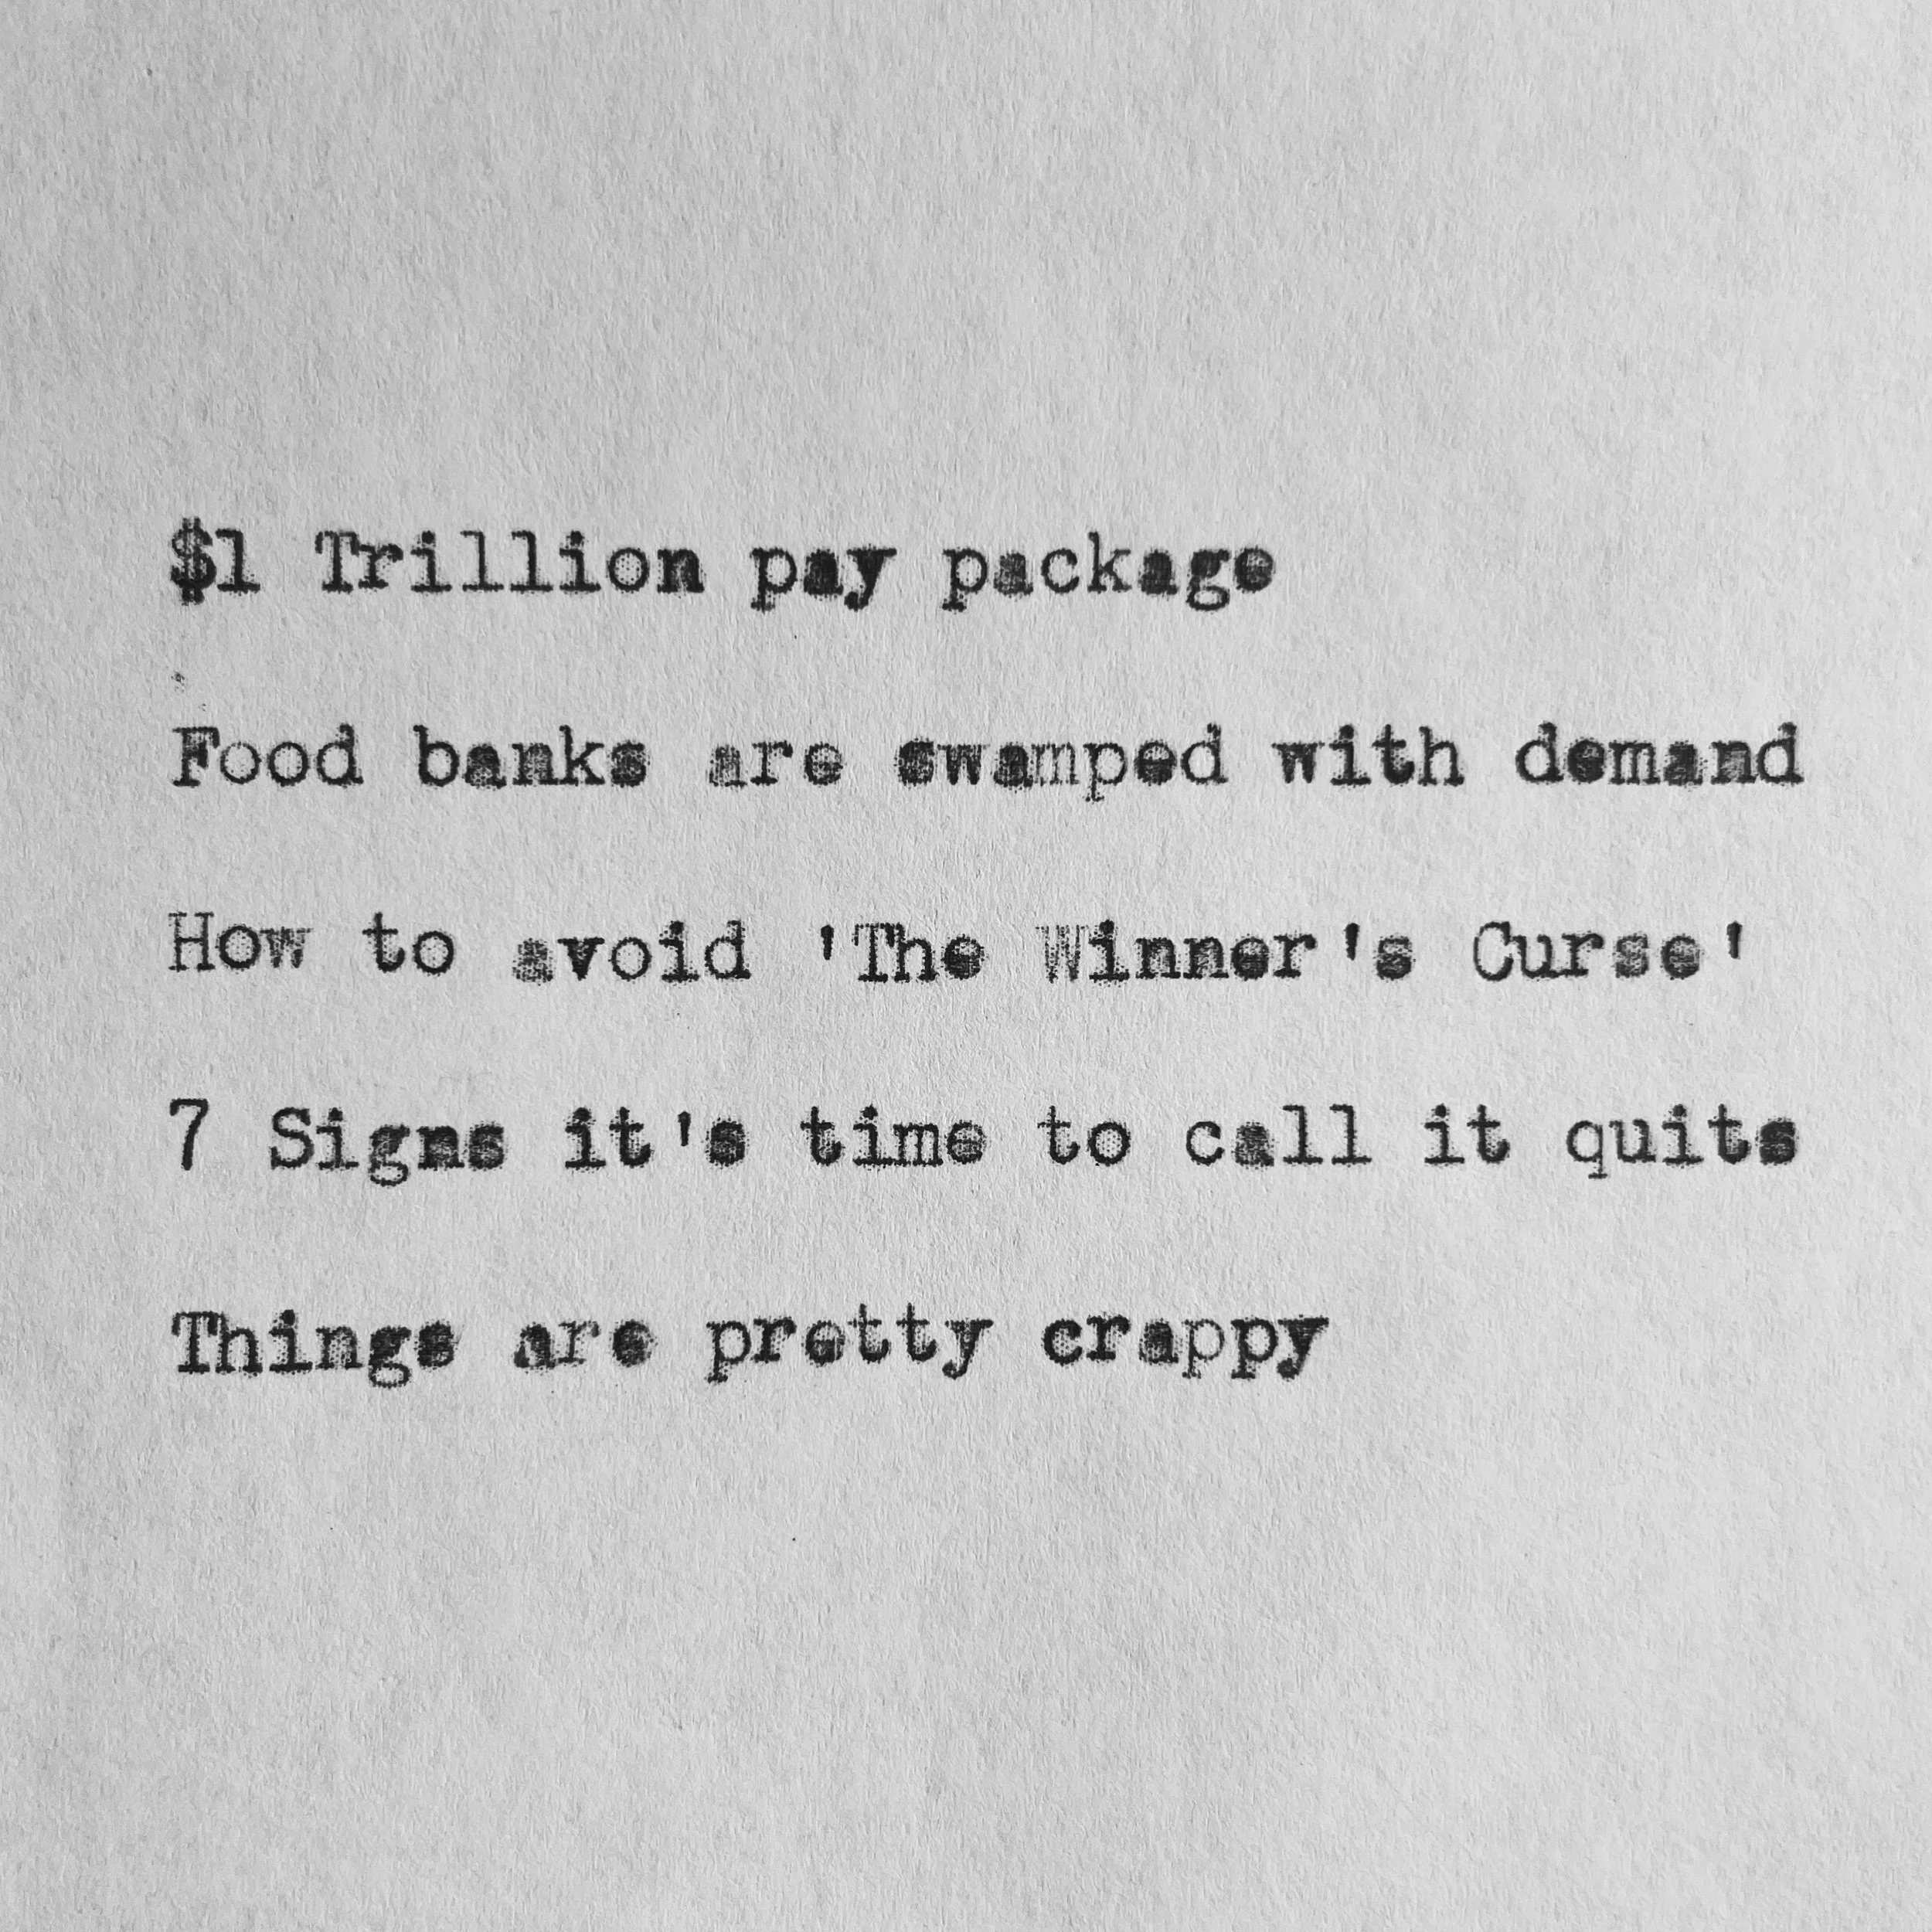 $1 Trillion pay package
Food banks are swamped with demand
How to avoid 'The Winner's Curse'
7 Signs it's time to call it quits
Things are pretty crappy